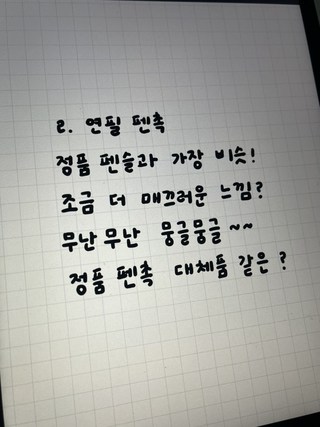 2. 연필 펜촉
정품 펜슬과 가장 비슷!
조금 더 매끄러운 느낌?
무난무난 뭉글뭉글 ~~
정품 펜촉 대체품 같은?